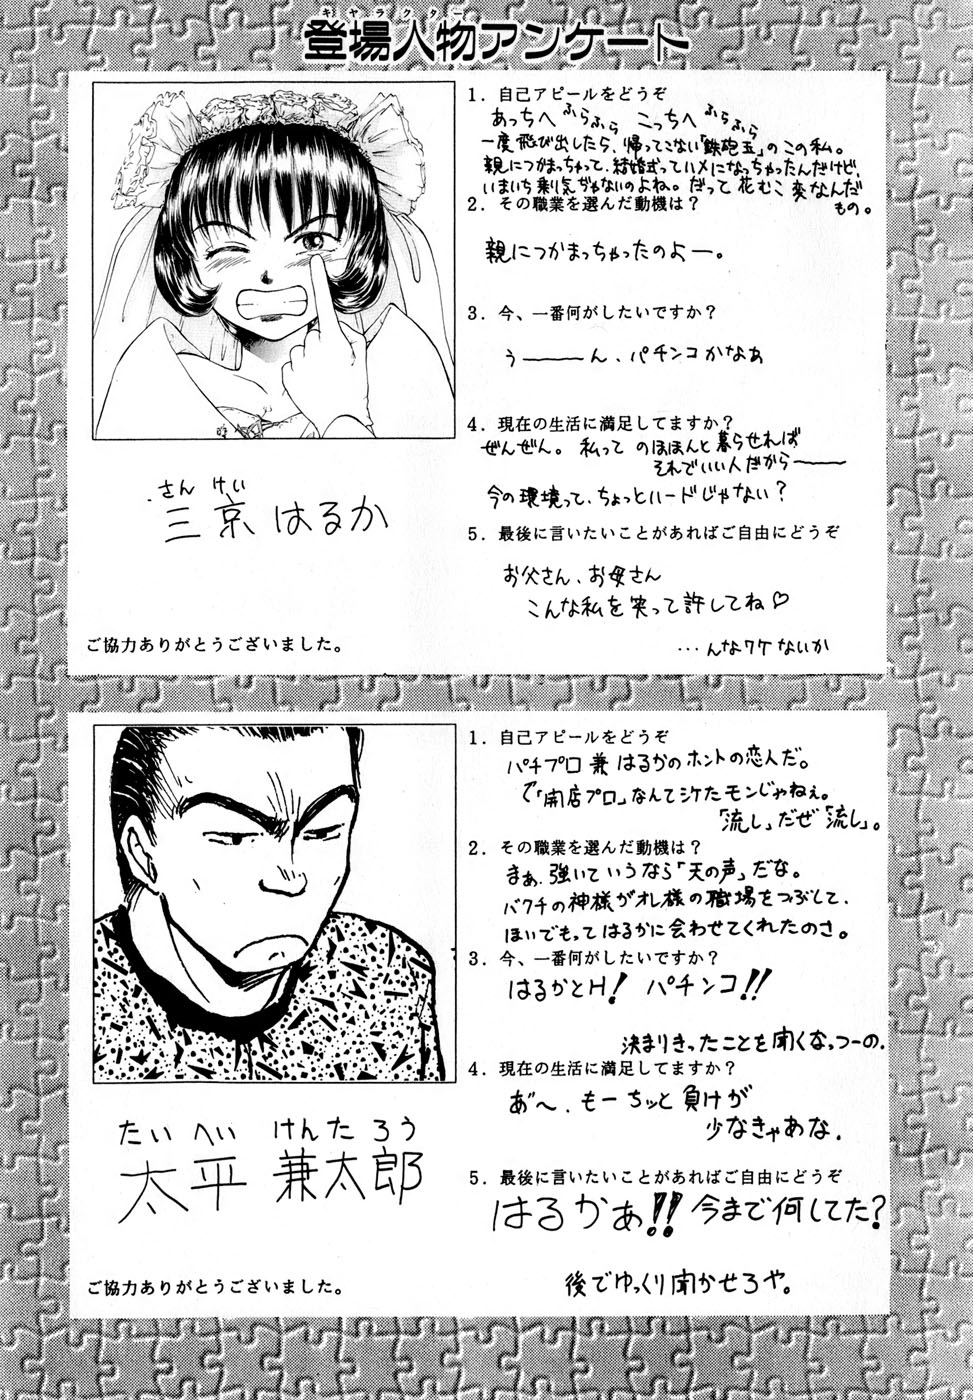 キャラクター
登場人物アンケート
1. 自己アピールをどうぞ
あっちへふらふら こっちへふらふら
一度飛び出したら、帰ってこない「鉄砲玉」のこの私。
親につかまっちゃって、結婚式ってハメになっちゃったんだけど、
いまいち乗り気がないのよね。だって花むこ変なんだ
もの。
2. その職業を選んだ動機は？
親につかまっちゃったのよー。
3. 今、一番何がしたいですか？
う———ん、パチンコかなあ
4. 現在の生活に満足してますか？
ぜんぜん。私って のほほんと暮らせれば
それでいい人だから———
今の環境って、ちょっとハードじゃない？
5. 最後に言いたいことがあればご自由にどうぞ
お父さん、お母さん
こんな私を笑って許してね♡
…んなワケないか
さんけい
三京 はるか
ご協力ありがとうございました。
1. 自己アピールをどうぞ
パチプロ兼はるかのホントの恋人だ。
で「開店プロ」なんてシケたモンじゃねぇ。
「流し」だぜ「流し」。
2. その職業を選んだ動機は？
まぁ、強いていうなら「天の声」だな。
バクチの神様がオレ様の職場をつぶして、
ほいでもってはるかに会わせてくれたのさ。
3. 今、一番何がしたいですか？
はるかとH！ パチンコ!!
決まりきったことを聞くなっつーの.
4. 現在の生活に満足してますか？
あ゛〜、もーちッと負けが
少なきゃあな.
5. 最後に言いたいことがあればご自由にどうぞ
はるかぁ!! 今まで何してた？
後でゆっくり聞かせろや。
たいへい けんたろう
太平 兼太郎
ご協力ありがとうございました。